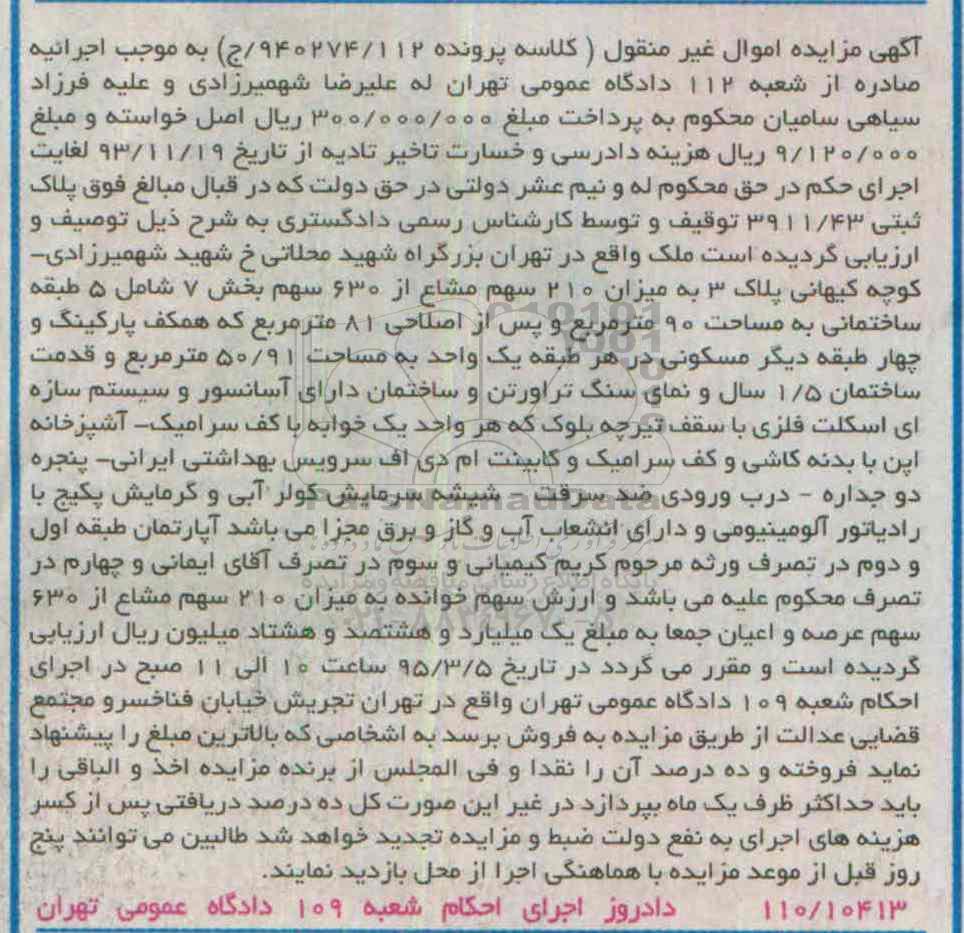 آگهی مزایده اموال غیر منقول ( کلاسه پرونده ۹۴۰۲۷۴/۱۱۲/ج) به موجب اجرائیه
صادره از شعبه ۱۱۲ دادگاه عمومی تهران له علیرضا شهمیرزادی و علیه فرزاد
سیاهی سامیان محکوم به پرداخت مبلغ ۳۰۰/۰۰۰/۰۰۰ ریال اصل خواسته و مبلغ
۹/۱۲۰/۰۰۰ ریال هزینه دادرسی و خسارت تاخیر تادیه از تاریخ ۹۳/۱۱/۱۹ لغایت
اجرای حکم در حق محکوم له و نیم عشر دولتی در حق دولت که در قبال مبالغ فوق پلاک
ثبتی ۳۹۱۱/۴۳ توقیف و توسط کارشناس رسمی دادگستری به شرح ذیل توصیف و
ارزیابی گردیده است ملک واقع در تهران بزرگراه شهید محلاتی خ شهید شهمیرزادی-
کوچه کیهانی پلاک ۳ به میزان ۲۱۰ سهم مشاع از ۶۳۰ سهم بخش ۷ شامل ۵ طبقه
ساختمانی به مساحت ۹۰ مترمربع و پس از اصلاحی ۸۱ مترمربع که همکف پارکینگ و
چهار طبقه دیگر مسکونی در هر طبقه یک واحد به مساحت ۵۰/۹۱ مترمربع و قدمت
ساختمان ۱/۵ سال و نمای سنگ تراورتن و ساختمان دارای آسانسور و سیستم سازه
ای اسکلت فلزی با سقف تیرچه بلوک که هر واحد یک خوابه با کف سرامیک- آشپزخانه
اپن با بدنه کاشی و کف سرامیک و کابینت ام دی اف سرویس بهداشتی ایرانی- پنجره
دو جداره - درب ورودی ضد سرقت - شیشه سرمایش کولر آبی و گرمایش پکیج با
رادیاتور آلومینیومی و دارای انشعاب آب و گاز و برق مجزا می باشد آپارتمان طبقه اول
و دوم در تصرف ورثه مرحوم کریم کیمیانی و سوم در تصرف آقای ایمانی و چهارم در
تصرف محکوم علیه می باشد و ارزش سهم خوانده به میزان ۲۱۰ سهم مشاع از ۶۳۰
سهم عرصه و اعیان جمعا به مبلغ یک میلیارد و هشتصد و هشتاد میلیون ریال ارزیابی
گردیده است و مقرر می گردد در تاریخ ۹۵/۳/۵ ساعت ۱۰ الی ۱۱ صبح در اجرای
احکام شعبه ۱۰۹ دادگاه عمومی تهران واقع در تهران تجریش خیابان فناخسرو مجتمع
قضایی عدالت از طریق مزایده به فروش برسد به اشخاصی که بالاترین مبلغ را پیشنهاد
نماید فروخته و ده درصد آن را نقدا و فی المجلس از برنده مزایده اخذ و الباقی را
باید حداکثر ظرف یک ماه بپردازد در غیر این صورت کل ده درصد دریافتی پس از کسر
هزینه های اجرای به نفع دولت ضبط و مزایده تجدید خواهد شد طالبین می توانند پنج
روز قبل از موعد مزایده با هماهنگی اجرا از محل بازدید نمایند.
۱۱۰/۱۰۴۱۳ دادروز اجرای احکام شعبه ۱۰۹ دادگاه عمومی تهران
ParsNamadData